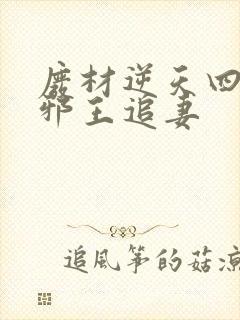 废材逆天四
邪王追妻
追风筝的菇凉